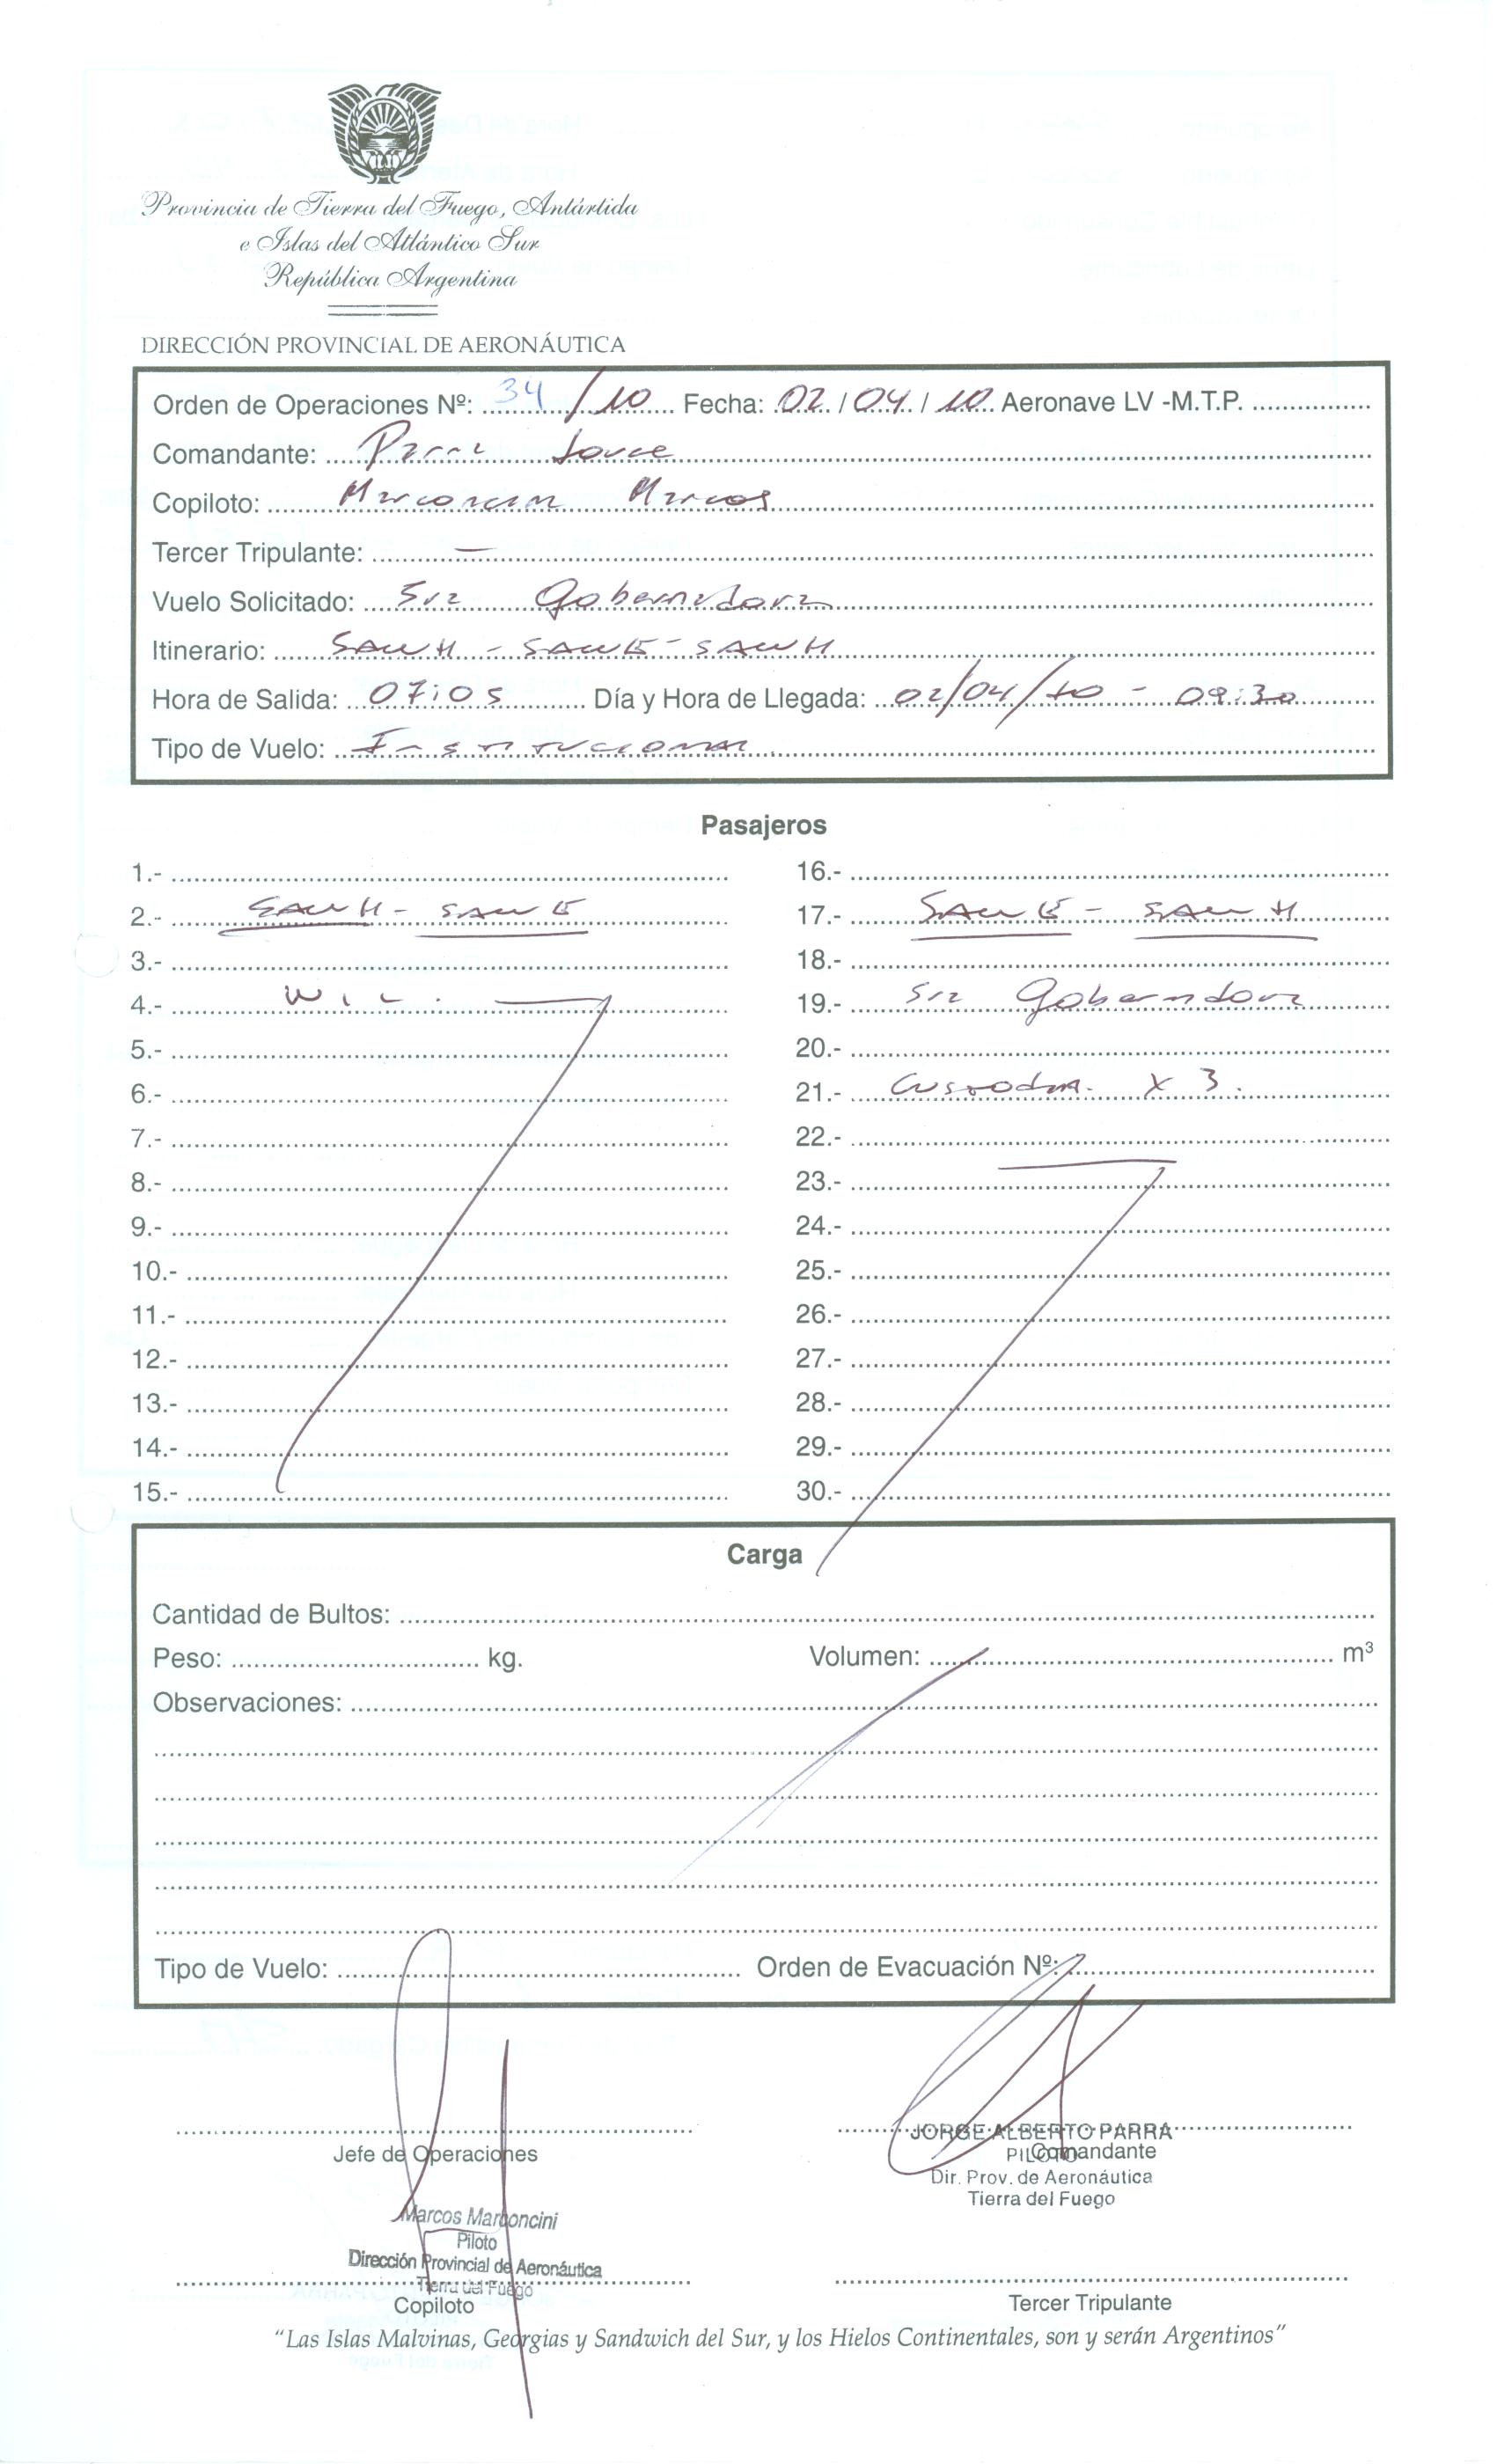 Provincia de Tierra del Fuego, Antártida
e Islas del Atlántico Sur
República Argentina
DIRECCIÓN PROVINCIAL DE AERONÁUTICA
Orden de Operaciones Nº: 34/10 Fecha: 02/04/10 Aeronave LV -M.T.P.
Comandante: Parra Jorge
Copiloto: Marconcini Marcos
Tercer Tripulante: —
Vuelo Solicitado: Sra Gobernadora
Itinerario: SAWH - SAWE - SAWH
Hora de Salida: 07:05 Día y Hora de Llegada: 02/04/10 - 09:30
Tipo de Vuelo: Institucional
Pasajeros
1.- 16.-
2.- SAWH - SAWE 17.- SAWE - SAWH
3.- 18.-
4.- 19.- Sra Gobernadora
5.- 20.-
6.- 21.- Custodia x 3.
7.- 22.-
8.- 23.-
9.- 24.-
10.- 25.-
11.- 26.-
12.- 27.-
13.- 28.-
14.- 29.-
15.- 30.-
Carga
Cantidad de Bultos:
Peso: kg. Volumen: m³
Observaciones:
Tipo de Vuelo: Orden de Evacuación Nº:
JORGE ALBERTO PARRA
Jefe de Operaciones PILOTO Comandante
Dir. Prov. de Aeronáutica
Tierra del Fuego
Marcos Marconcini
Piloto
Dirección Provincial de Aeronáutica
Tierra del Fuego
Copiloto Tercer Tripulante
"Las Islas Malvinas, Georgias y Sandwich del Sur, y los Hielos Continentales, son y serán Argentinos"